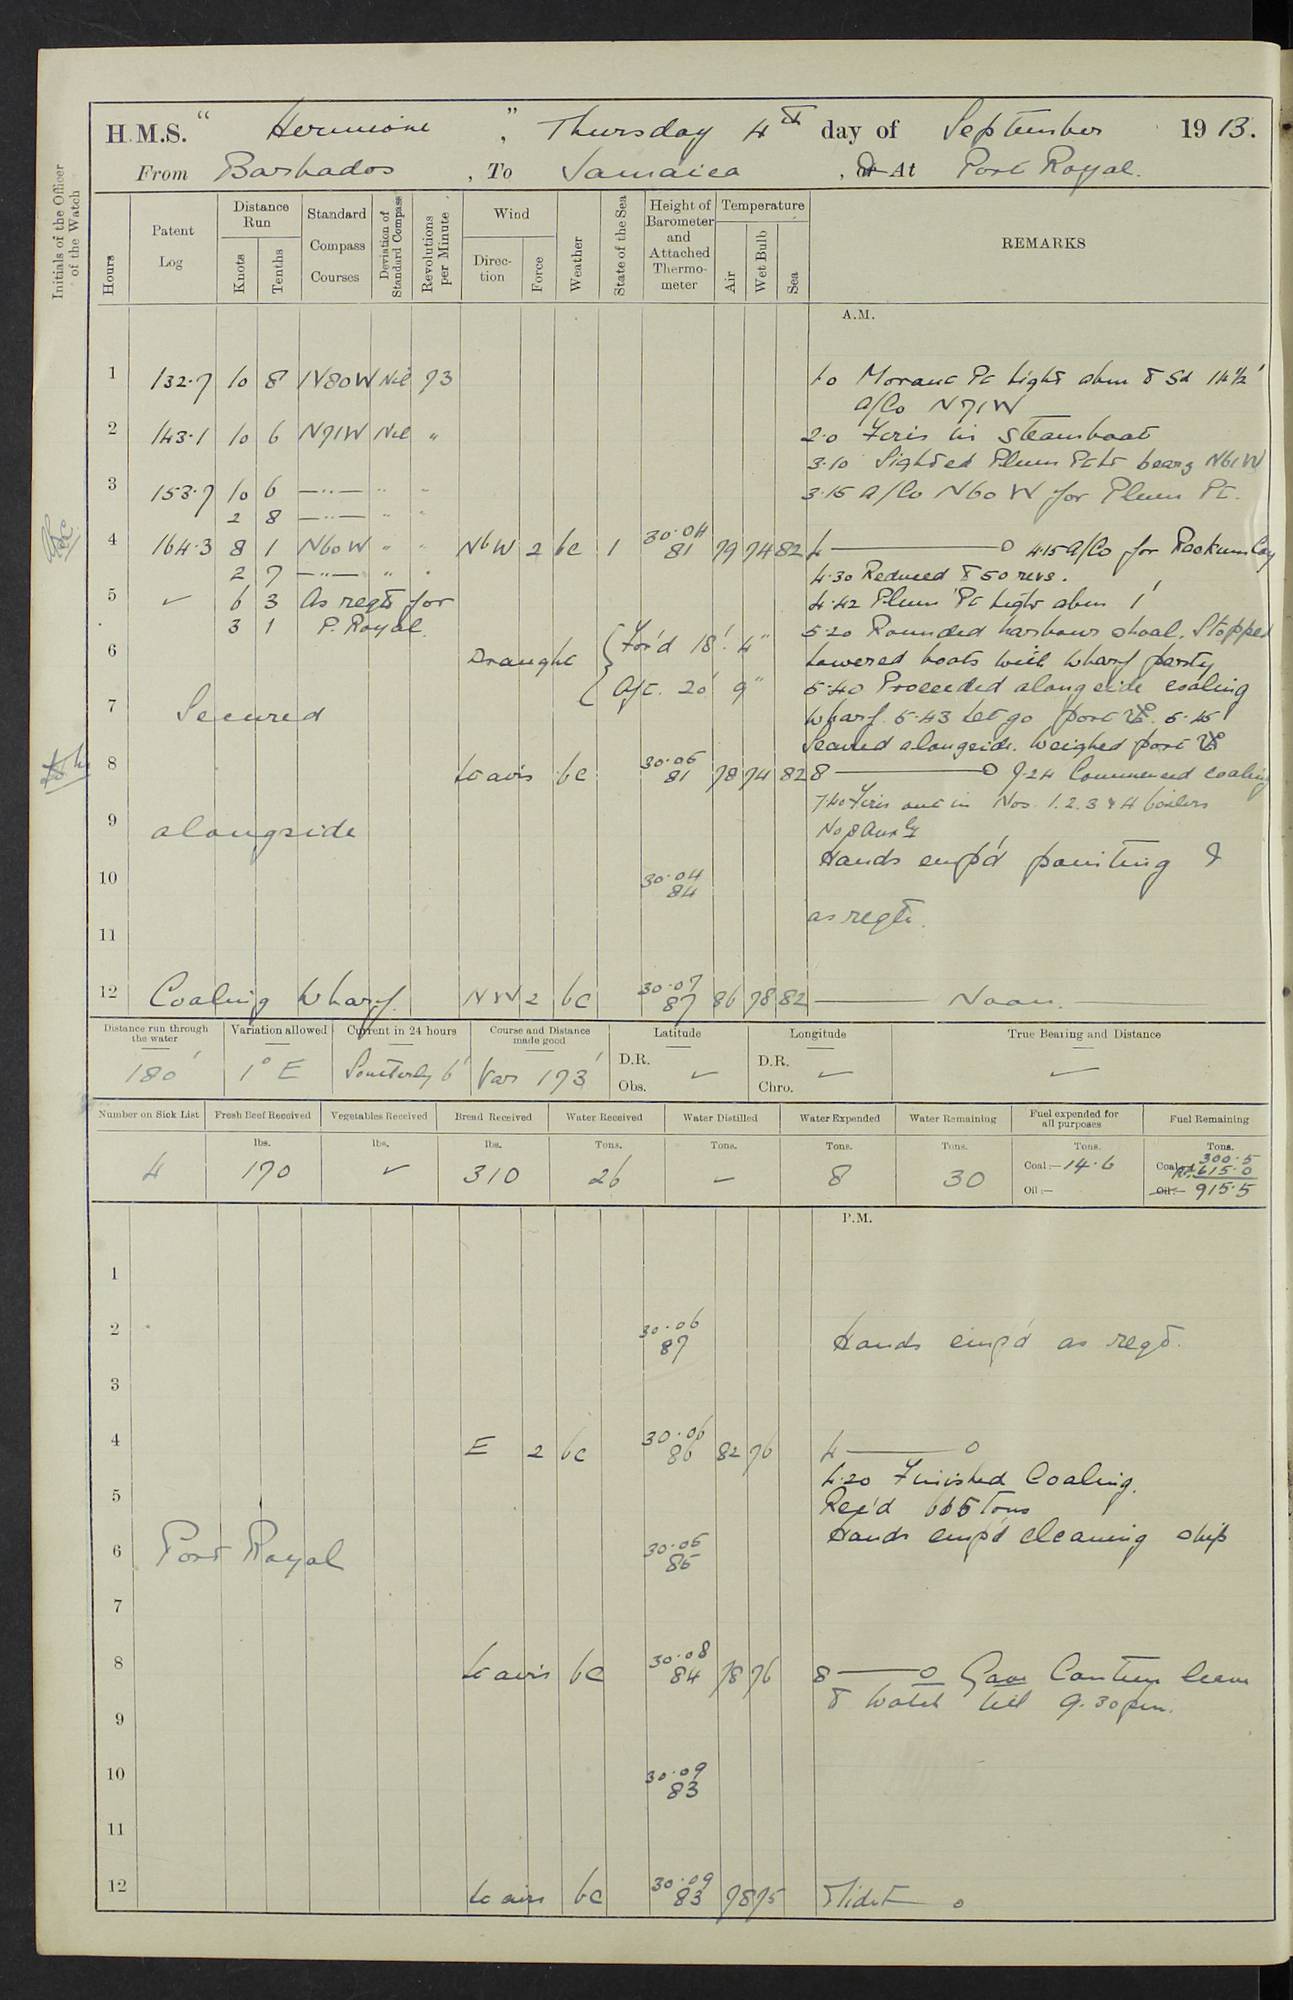 H.M.S. "Hermione", Thursday 4th day of September 1913.
From Barbados, To Jamaica, Or At Port Royal.
Initials of the Officer of the Watch
Hours
Patent Log
Distance Run
Knots
Tenths
Standard Compass Courses
Deviation of Standard Compass
Revolutions per Minute
Wind
Direction
Force
Weather
State of the Sea
Height of Barometer and Attached Thermometer
Temperature
Air
Wet Bulb
Sea
REMARKS
A.M.
1 132.7 10 8 N80W Nil 73 1.0 Morant Pt Light abm to Sd 14½'
a/Co N71W
2 143.1 10 6 N71W Nil " 2.0 Fires in Steamboat
3.10 Sighted Plum Pt Lt bearg N61W
3 153.7 10 6 —"— " " 3.15 a/Co N60W for Plum Pt.
2 8 —"— " "
4 164.3 8 1 N60W " " NbW 2 bc 1 30.04 81 79 74 82 4 — 0 4.15 a/Co for Rackum Cay
2 7 —"— " " 4.30 Reduced to 50 revs.
5 ✓ 6 3 As reqd for 4.42 Plum Pt Light abm 1'
3 1 P. Royal. 5.20 Rounded harbour shoal. Stopped
6 Draught { For'd 18' 4" Lowered boats with wharf party
Aft. 20' 9" 5.40 Proceeded alongside coaling
7 Secured wharf. 5.43 Let go port ⚓. 5.45
Secured alongside. Weighed port ⚓
8 Lt airs bc 30.05 81 78 74 82 8 — 0 7.24 Commenced coaling
7.40 Fires out in Nos. 1. 2. 3 & 4 boilers
9 alongside No 8 Aux
Hands emp'd painting &
10 30.04 84
as reqd.
11
12 Coaling Wharf. NW 2 bc 30.07 87 86 78 82 — Noon.
Distance run through the water 180'
Variation allowed 1° E
Current in 24 hours Southerly 6'
Course and Distance made good Var 173'
Latitude D.R. Obs. ✓
Longitude D.R. Chro. ✓
True Bearing and Distance ✓
Number on Sick List 4
Fresh Beef Received lbs. 170
Vegetables Received lbs. ✓
Bread Received lbs. 310
Water Received Tons. 26
Water Distilled Tons. —
Water Expended Tons. 8
Water Remaining Tons. 30
Fuel expended for all purposes Tons. Coal:— 14.6 Oil:—
Fuel Remaining Tons. Coal 300.5 615.0 Oil:— 915.5
P.M.
1
2 30.06 87 Hands emp'd as reqd.
3
4 E 2 bc 30.06 86 82 76 4 — 0
4.20 Finished Coaling.
5 Rec'd 665 Tons
Hands emp'd cleaning ship
6 Port Royal 30.05 85
7
8 Lt airs bc 30.08 84 78 76 8 — 0 Gave Canteen leave
to watch till 9.30 pm.
9
10 30.09 83
11
12 Lt airs bc 30.09 83 78 75 Midt — 0